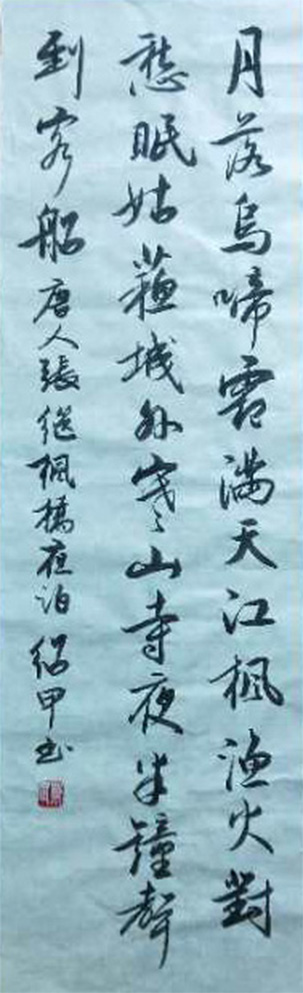 月落烏啼霜滿天江楓漁火對
愁眠姑蘇城外寒山寺夜半鐘聲
到客船唐人張繼楓橋夜泊紹甲书